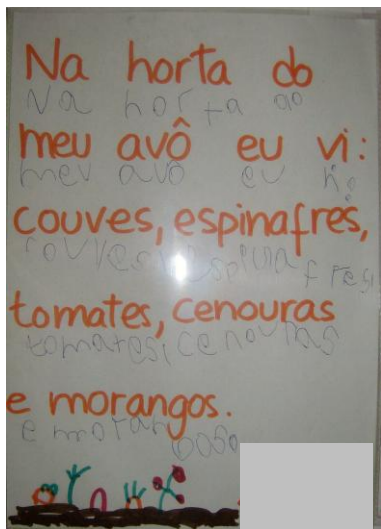 Na horta do
Na horta do
meu avô eu vi:
meu avô eu vi:
couves, espinafres,
couves, espinafres,
tomates, cenouras
tomates, cenouras
e morangos.
e morangos